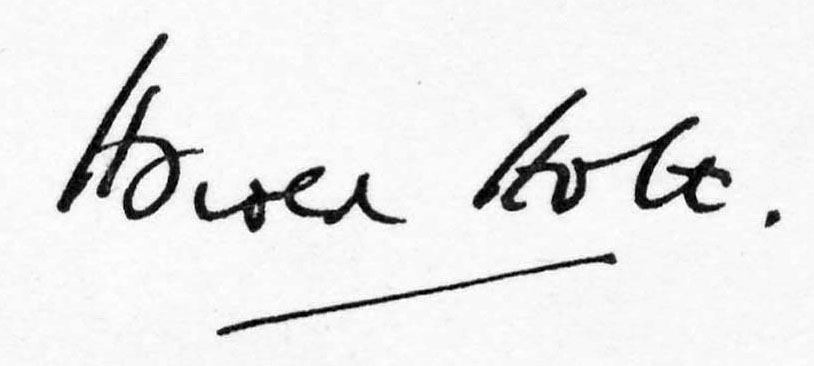 Harold Holt.